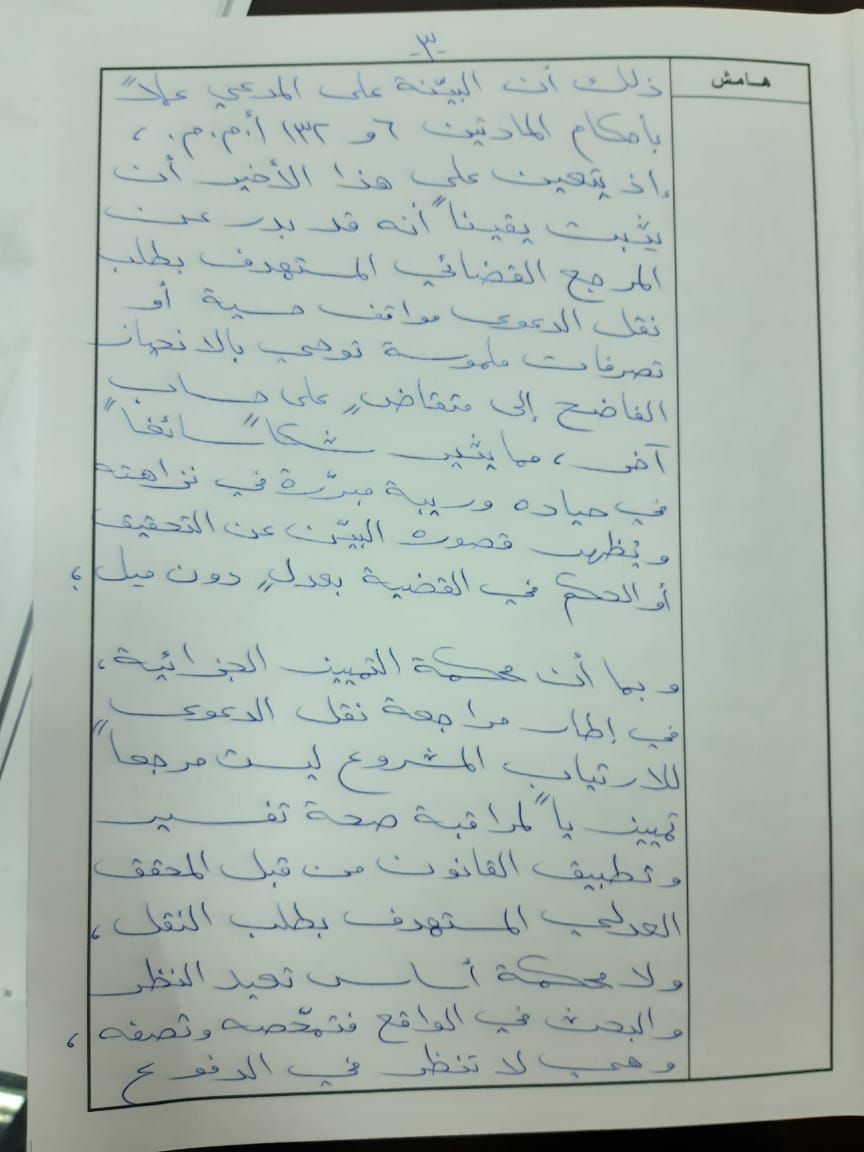 -٣-
هامش
ذلك أن البيّنة على المدعي عملاً
بأحكام المادتين ٦ و ١٣٢ أ.م.م. ،
إذ يتعين على هذا الأخير أن
يثبت يقيناً أنه قد بدر عن
المرجع القضائي المستهدف بطلب
نقل الدعوى مواقف حسية أو
تصرفات ملموسة توحي بالانحياز
الفاضح إلى متقاضٍ على حساب
آخر ، مما يثير شكاً سائغاً
في حياده وريبة مبرّرة في نزاهته
ويظهر قصوره البيّن عن التحقيق
أو الحكم في القضية بعدلٍ دون ميل ؛
وبما أن محكمة التمييز الجزائية،
في إطار مراجعة نقل الدعوى
للارتياب المشروع ليست مرجعاً
تمييزياً لمراقبة صحة تفسير
وتطبيق القانون من قبل المحقق
العدلي المستهدف بطلب النقل ،
ولا محكمة أساس تعيد النظر
والبحث في الواقع فتمحّصه وتصفه ،
وهي لا تنظر في الدفوع